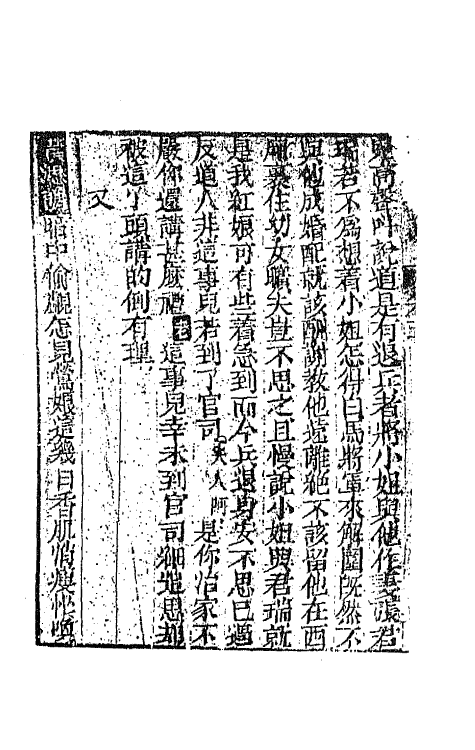 高聲叫說道是有退兵者將小姐與他作妻張君
瑞若不爲想着小姐怎得白馬將軍來解圍旣然不
與他成婚配就該酬謝教他遠離絕不該留他在西
廂裏住幼女曠夫豈不思之且慢說小姐與君瑞就
是我紅娘可有些着急到而今兵退身安不思已過
反道人非這事兒若到了官司夫人阿是你治家不
嚴你還講甚麽禮老這事兒幸未到官司細這思想
被這丫頭講的倒有理
又
暗中偷覷怎見鶯娘這幾日香肌悄瘦